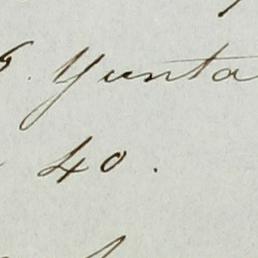 Yunta
40.